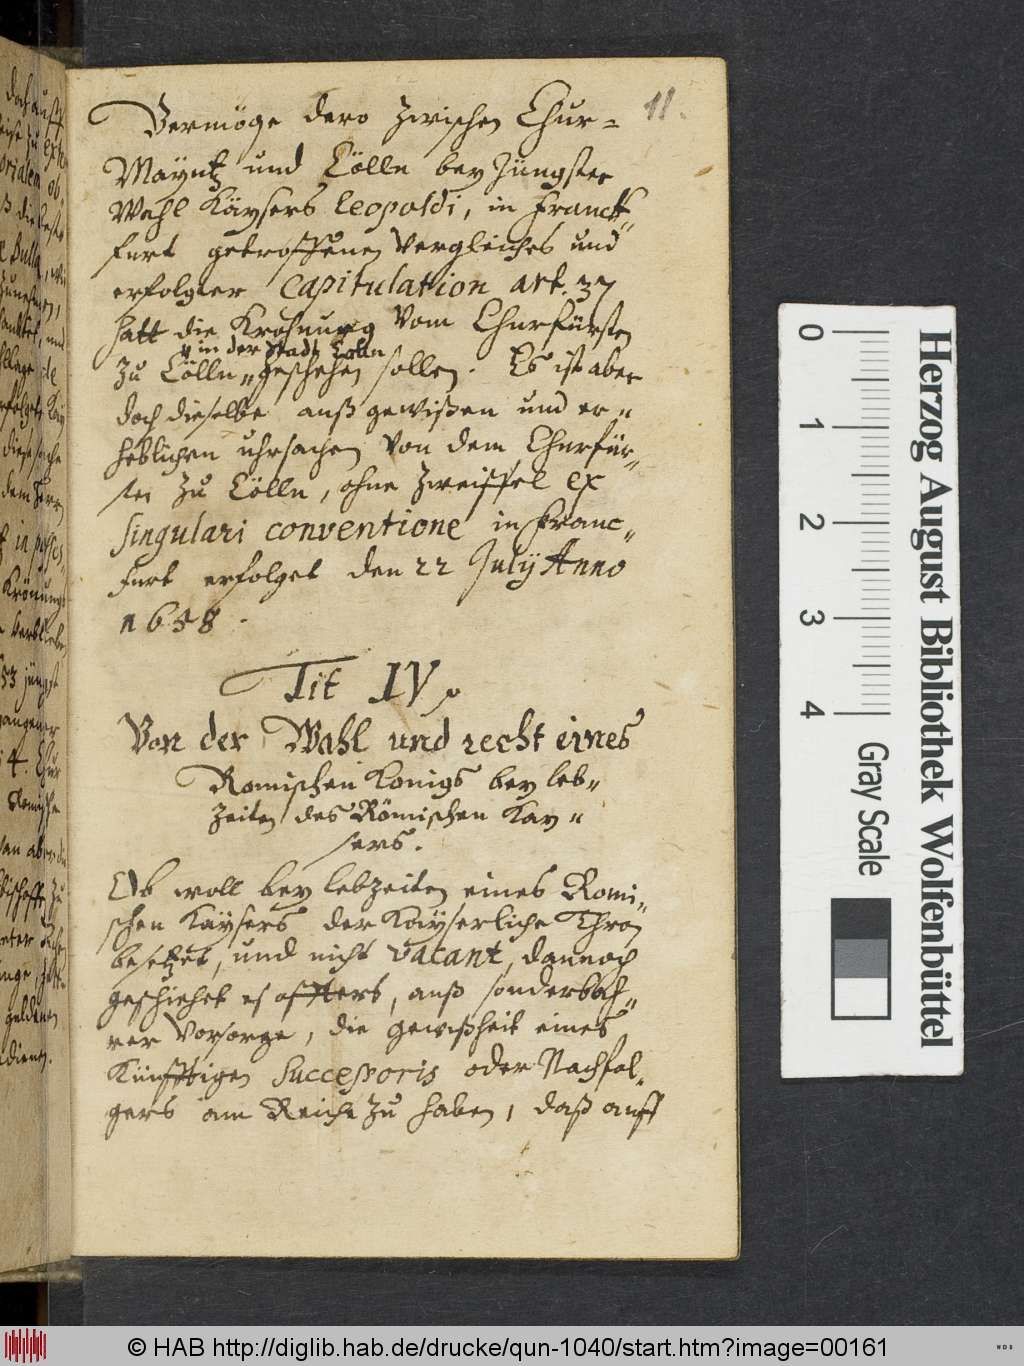 11.
Vermöge dero zwischen Chur-
Mayntz und Cölln bey Jüngster
Wahl Käysers Leopoldi, in Franck-
furt getroffenen Vergleiches und
erfolgter Capitulation art. 37
hatt die Kröhnung Vom Churfürsten
in der Stadt Cölln
Zu Cölln geschehen sollen. Es ist aber
doch dieselbe auß gewißen und er-
heblichen uhrsachen Von dem Churfür-
sten zu Cölln, ohne Zweiffel ex
singulari conventione in Franc-
furt erfolget den 22 July Anno
1658.
Tit IV.
Von der Wahl und recht eines
Romischen Konigs bey leb-
Zeiten des Römischen Kay-
sers.
Ob woll bey lebzeiten eines Romi-
schen Kaysers der Kayserliche Thron
besetzet, und nicht vacant, dannoch
geschiehet es offters, auß sonderbah-
rer Vorsorge, die gewißheit eines
Künfftigen Successoris oder Nachfol-
gers am Reiche zu haben, daß auff
0
1
2
3
4
Gray Scale
Herzog August Bibliothek Wolfenbüttel
© HAB http://diglib.hab.de/drucke/qun-1040/start.htm?image=00161